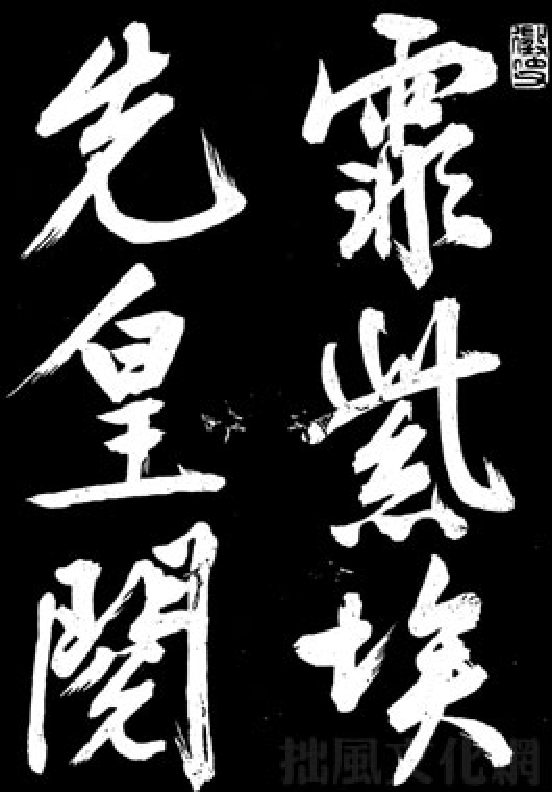 霏紫埃
先皇閱
拙風文化網